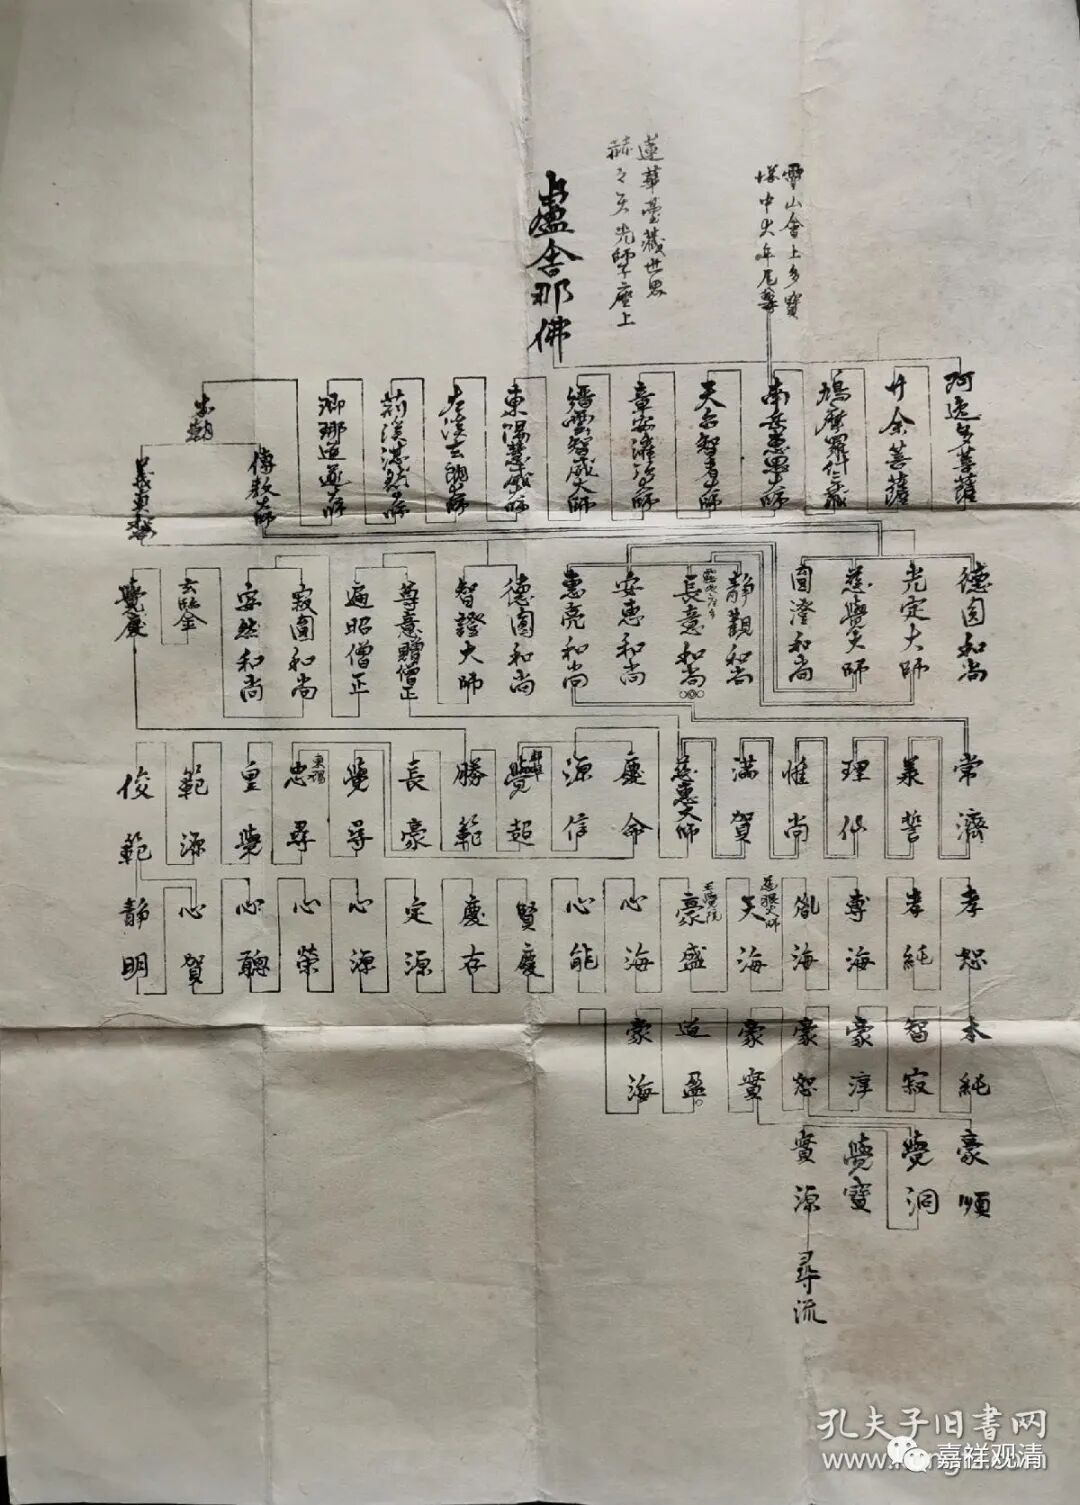 靈山會上多寶
塔中大牟尼尊
蓮華臺藏世界
赫々天光師子座上
盧舍那佛
阿逸多菩薩
廿余菩薩
鳩摩羅什三藏
南岳惠思大師
天台智者大師
章安灌頂大師
縉雲智威大師
東陽慧威大師
左溪玄朗大師
荊溪湛然大師
瑯琊道邃大師
本朝
傳教大師
義真
德圓和尚
光定大師
慈覺大師
圓澄和尚
靜觀和尚
長意和尚
安惠和尚
惠亮和尚
德圓和尚
智證大師
尊意贈僧正
遍昭僧正
寂圓和尚
安然和尚
玄昭
覺慶
常濟
義誓
理仙
惟尚
滿賀
慈惠大師
慶命
源信
覺超
勝範
長豪
覺尋
東陽
忠尋
皇覺
範源
俊範
孝恕
孝純
專海
胤海
慈眼大師
天海
豪盛
心海
心能
賢慶
慶存
定源
心源
心榮
心聰
心賀
靜明
本純
智寂
豪淳
豪恕
豪實
道盈
豪海
豪順
覺洞
覺寶
實源
尋流
孔夫子旧書网
嘉祥观清